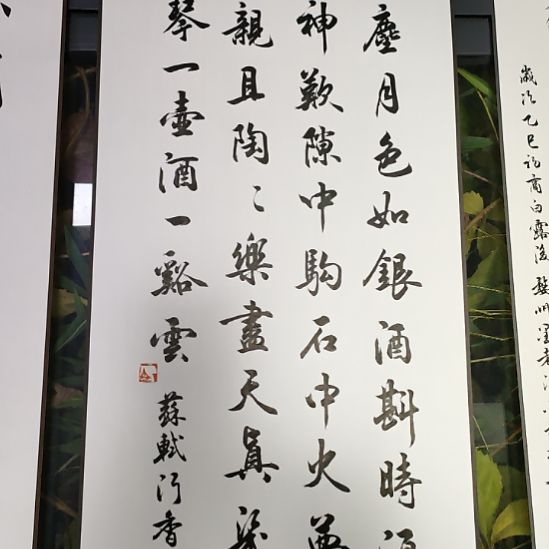 歲次乙巳初商白露後婺州
塵月色如銀酒斟時須
神歎隙中駒石中火夢
親且陶〻樂盡天真幾
琴一壺酒一谿雲
蘇軾行香